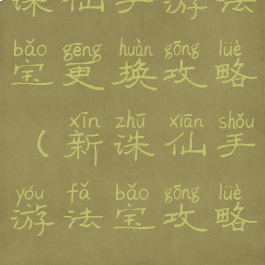 诛仙手游法
bǎo gēng huàn gōng lüè
宝更换攻略
xīn zhū xiān shǒu
（新诛仙手
yóu fǎ bǎo gōng lüè
游法宝攻略